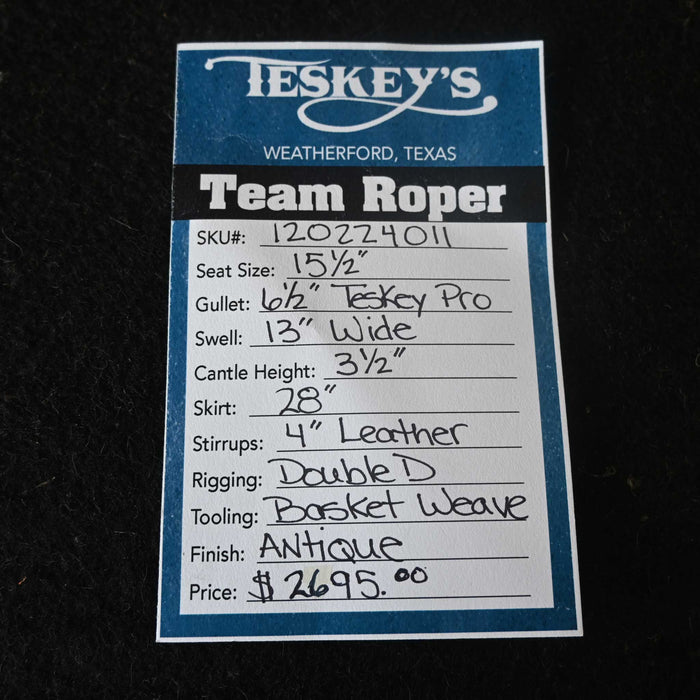 TESKEY'S
WEATHERFORD, TEXAS
Team Roper
SKU#: 120224011
Seat Size: 15½"
Gullet: 6½" Teskey Pro
Swell: 13" Wide
Cantle Height: 3½"
Skirt: 28"
Stirrups: 4" Leather
Rigging: Double D
Tooling: Basket Weave
Finish: ANtiQUE
Price: $2695.00